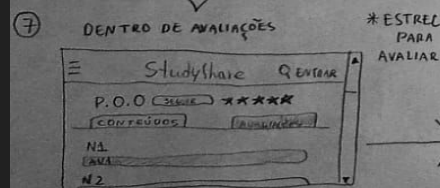 7 DENTRO DE AVALIAÇÕES
* ESTREL
PARA
AVALIAR
StudyShare Q ENTRAR
P.O.O SEGUIR ★★★★★
CONTEÚDOS AVALIAÇÕES
N1
AV1
N2